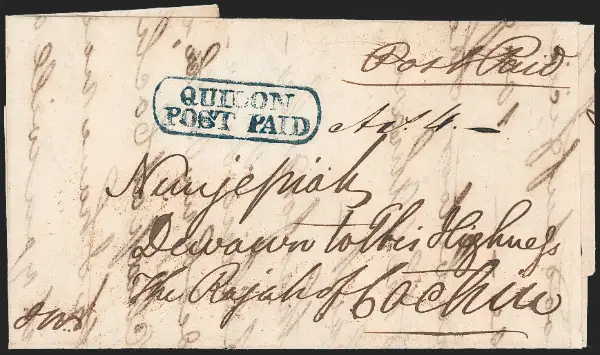 Post Paid
QUILON
POST PAID
As. 4. —
Nunjepiah
Dewawn to His Highness
The Rajah of Cochin